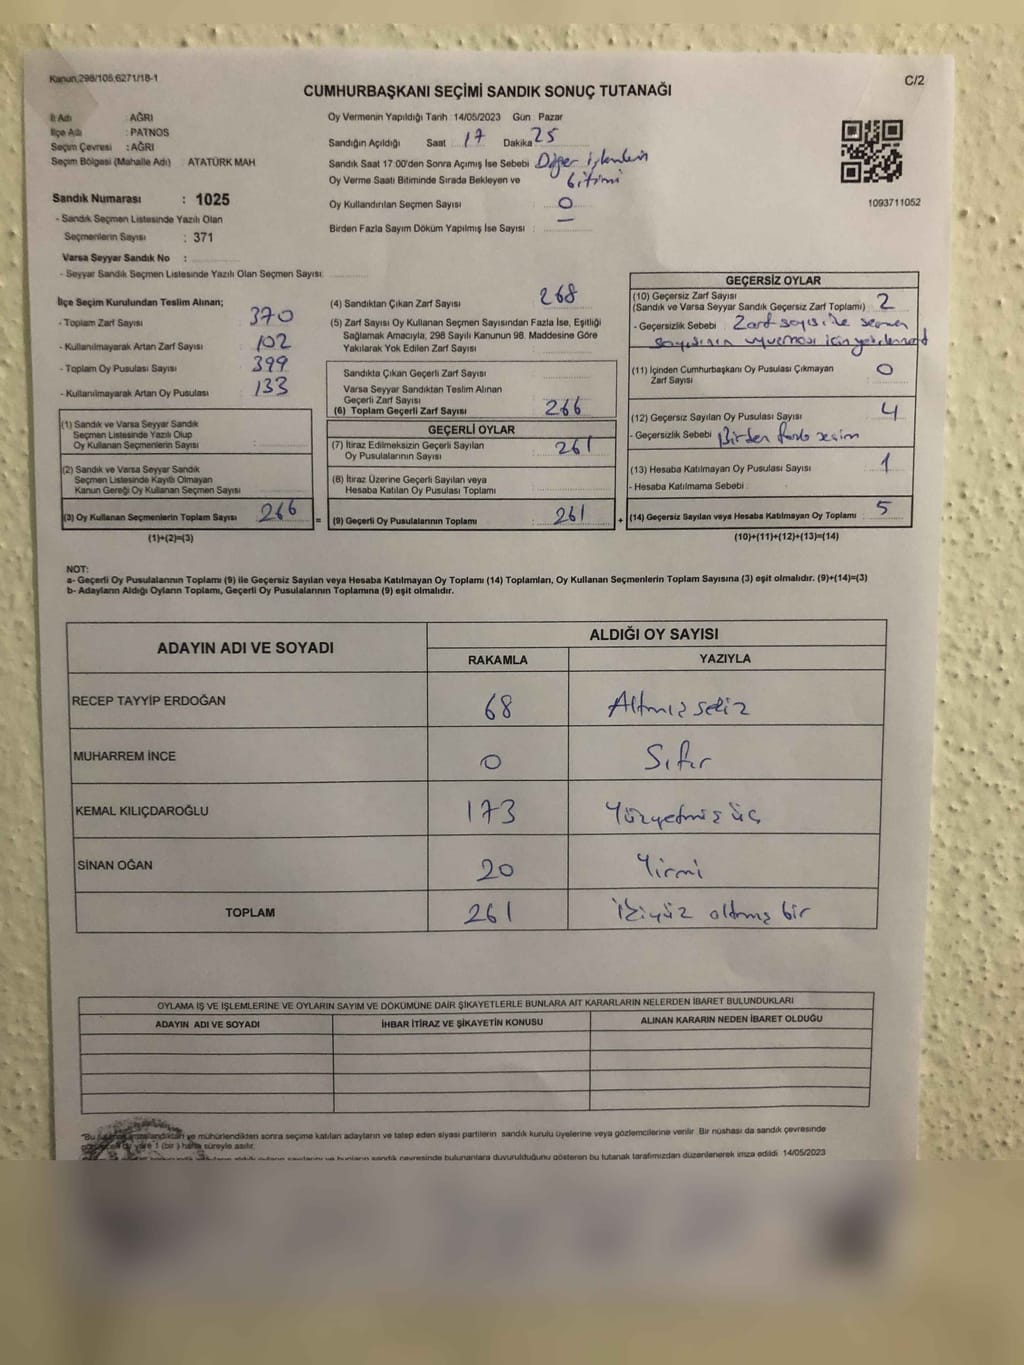 Kanun,298/105,6271/18-1
C/2
CUMHURBAŞKANI SEÇİMİ SANDIK SONUÇ TUTANAĞI
İl Adı : AĞRI
İlçe Adı : PATNOS
Seçim Çevresi : AĞRI
Seçim Bölgesi (Mahalle Adı) : ATATÜRK MAH
Sandık Numarası : 1025
- Sandık Seçmen Listesinde Yazılı Olan
Seçmenlerin Sayısı : 371
Varsa Seyyar Sandık No :
- Seyyar Sandık Seçmen Listesinde Yazılı Olan Seçmen Sayısı:
Oy Vermenin Yapıldığı Tarih 14/05/2023 Gün Pazar
Sandığın Açıldığı Saat 17 Dakika 25
Sandık Saat 17:00'den Sonra Açımış İse Sebebi Diğer işlemlerin
bitimi
Oy Verme Saati Bitiminde Sırada Bekleyen ve
Oy Kullandırılan Seçmen Sayısı : 0
Birden Fazla Sayım Döküm Yapılmış İse Sayısı : —
1093711052
İlçe Seçim Kurulundan Teslim Alınan;
- Toplam Zarf Sayısı 370
- Kullanılmayarak Artan Zarf Sayısı 102
- Toplam Oy Pusulası Sayısı 399
- Kullanılmayarak Artan Oy Pusulası 133
(1) Sandık ve Varsa Seyyar Sandık
Seçmen Listesinde Yazılı Olup
Oy Kullanan Seçmenlerin Sayısı :
(2) Sandık ve Varsa Seyyar Sandık
Seçmen Listesinde Kayıtlı Olmayan
Kanun Gereği Oy Kullanan Seçmen Sayısı
(3) Oy Kullanan Seçmenlerin Toplam Sayısı 266 =
(1)+(2)=(3)
(4) Sandıktan Çıkan Zarf Sayısı 268
(5) Zarf Sayısı Oy Kullanan Seçmen Sayısından Fazla İse, Eşitliği
Sağlamak Amacıyla, 298 Sayılı Kanunun 98. Maddesine Göre
Yakılarak Yok Edilen Zarf Sayısı :
Sandıkta Çıkan Geçerli Zarf Sayısı
Varsa Seyyar Sandıktan Teslim Alınan
Geçerli Zarf Sayısı
(6) Toplam Geçerli Zarf Sayısı 266
GEÇERLİ OYLAR
(7) İtiraz Edilmeksizin Geçerli Sayılan
Oy Pusulalarının Sayısı : 261
(8) İtiraz Üzerine Geçerli Sayılan veya
Hesaba Katılan Oy Pusulası Toplamı
(9) Geçerli Oy Pusulalarının Toplamı : 261 +
GEÇERSİZ OYLAR
(10) Geçersiz Zarf Sayısı
(Sandık ve Varsa Seyyar Sandık Geçersiz Zarf Toplamı) 2
- Geçersizlik Sebebi : Zarf sayısı ile seçmen
sayısının uyuşması için
(11) İçinden Cumhurbaşkanı Oy Pusulası Çıkmayan
Zarf Sayısı : 0
(12) Geçersiz Sayılan Oy Pusulası Sayısı 4
- Geçersizlik Sebebi : Birden fazla seçim
(13) Hesaba Katılmayan Oy Pusulası Sayısı : 1
- Hesaba Katılmama Sebebi :
(14) Geçersiz Sayılan veya Hesaba Katılmayan Oy Toplamı : 5
(10)+(11)+(12)+(13)=(14)
NOT:
a- Geçerli Oy Pusulalarının Toplamı (9) ile Geçersiz Sayılan veya Hesaba Katılmayan Oy Toplamı (14) Toplamları, Oy Kullanan Seçmenlerin Toplam Sayısına (3) eşit olmalıdır. (9)+(14)=(3)
b- Adayların Aldığı Oyların Toplamı, Geçerli Oy Pusulalarının Toplamına (9) eşit olmalıdır.
ADAYIN ADI VE SOYADI
ALDIĞI OY SAYISI
RAKAMLA YAZIYLA
RECEP TAYYİP ERDOĞAN 68 Altmış sekiz
MUHARREM İNCE 0 Sıfır
KEMAL KILIÇDAROĞLU 173 Yüzyetmiş üç
SİNAN OĞAN 20 Yirmi
TOPLAM 261 İkiyüz altmış bir
OYLAMA İŞ VE İŞLEMLERİNE VE OYLARIN SAYIM VE DÖKÜMÜNE DAİR ŞİKAYETLERLE BUNLARA AİT KARARLARIN NELERDEN İBARET BULUNDUKLARI
ADAYIN ADI VE SOYADI İHBAR İTİRAZ VE ŞİKAYETİN KONUSU ALINAN KARARIN NEDEN İBARET OLDUĞU
"Bu ve mühürlendikten sonra seçime katılan adayların ve talep eden siyasi partilerin sandık kurulu üyelerine veya gözlemcilerine verilir. Bir nüshası da sandık çevresinde
yere 1 (bir) hafta süreyle asılır.
sandık çevresinde bulunanlara duyurulduğunu gösteren bu tutanak tarafımızdan düzenlenerek imza edildi 14/05/2023